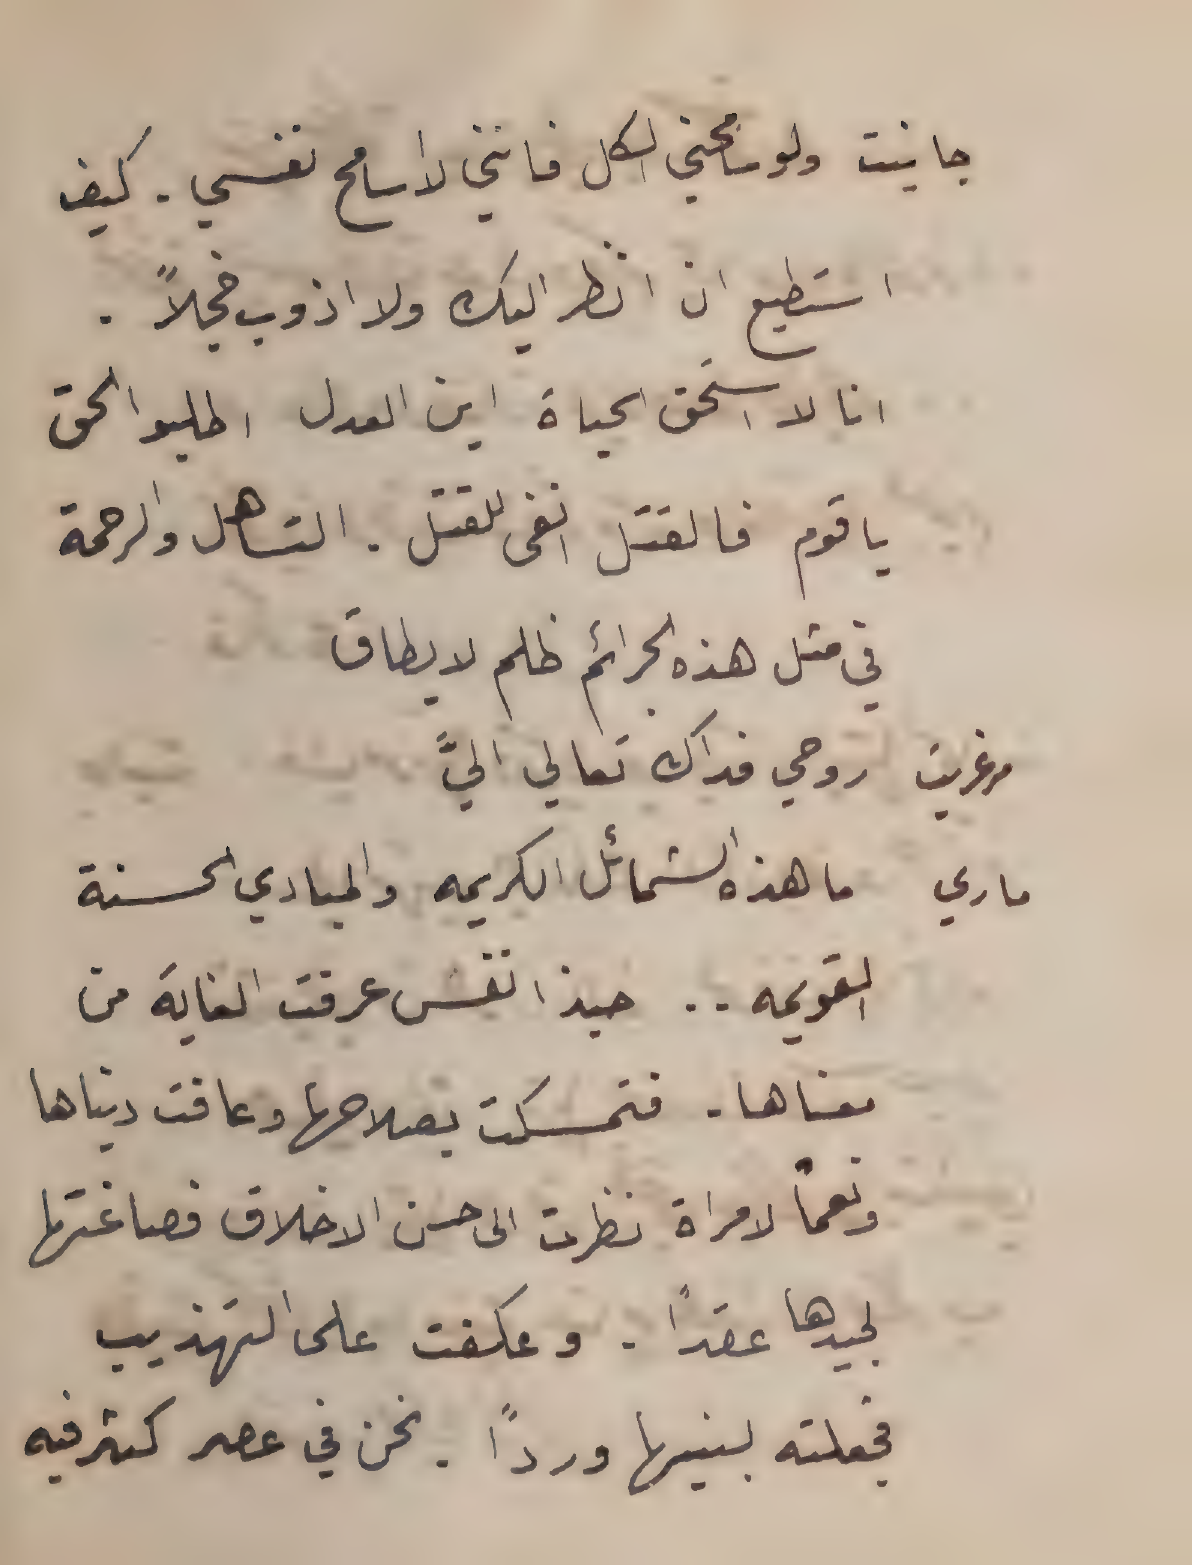 جانيت ولو سامحني الكل فانني لا اسامح نفسي . كيف
استطيع ان انظر اليك ولا اذوب خجلاً .
انا لا استحق الحياة اين العدل اطلبوا الحق
يا قوم فالقتل انفى للقتل . التساهل والرحمة
في مثل هذه الجرائم ظلم لا يطاق
مرغريت روحي فداك تعالي اليَّ
ماري ما هذه الشمائل الكريمه والمبادي الحسنة
القويمه .. حبذا نفس عرفت الغاية من
معناها . فتمسكت بصلاحها وعافت دنياها
ونعماً لامراة نظرت الى حسن الاخلاق فصاغتها
لجيدها عقداً . وعكفت على التهذيب
فجعلته لبنيها ورداً . نحن في عصر كثر فيه